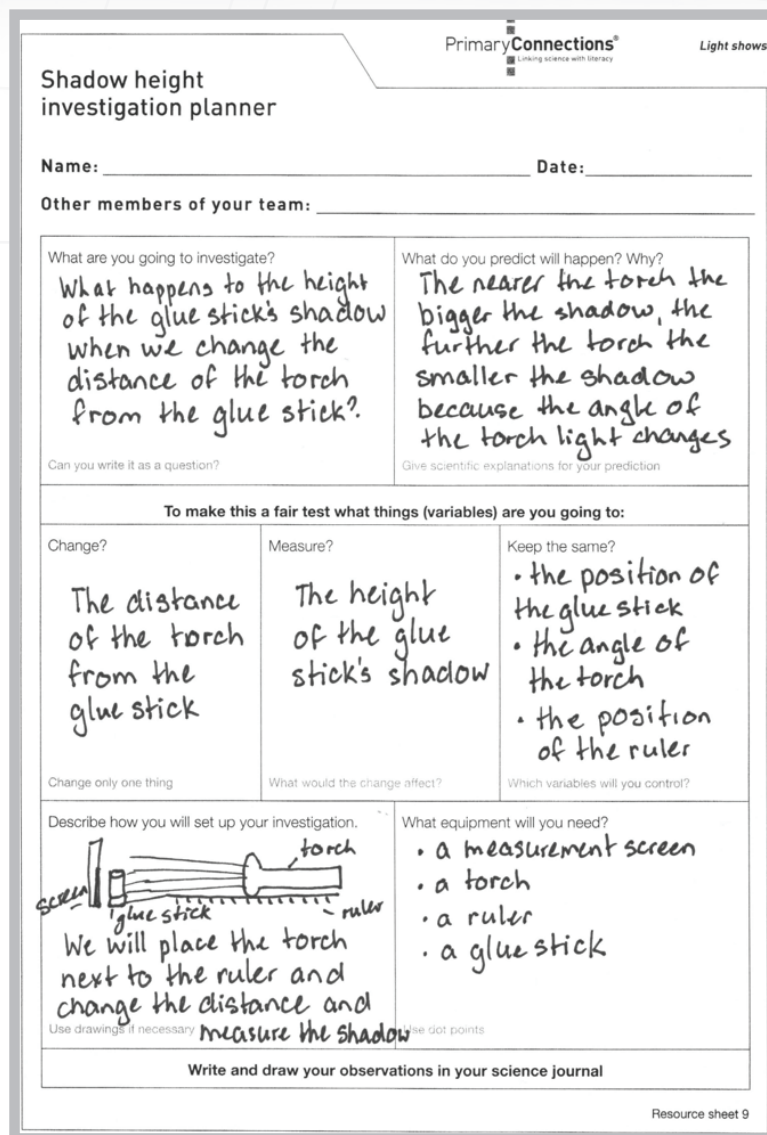 PrimaryConnections®
Linking science with literacy
Light shows
Shadow height
investigation planner
Name:
Date:
Other members of your team:
What are you going to investigate?
What happens to the height
of the glue stick's shadow
when we change the
distance of the torch
from the glue stick?
Can you write it as a question?
What do you predict will happen? Why?
The nearer the torch the
bigger the shadow, the
further the torch the
smaller the shadow
because the angle of
the torch light changes
Give scientific explanations for your prediction
To make this a fair test what things (variables) are you going to:
Change?
The distance
of the torch
from the
glue stick
Change only one thing
Measure?
The height
of the glue
stick's shadow
What would the change affect?
Keep the same?
• the position of
the glue stick
• the angle of
the torch
• the position
of the ruler
Which variables will you control?
Describe how you will set up your investigation.
torch
screen
glue stick
ruler
We will place the torch
next to the ruler and
change the distance and
measure the shadow
Use drawings if necessary
What equipment will you need?
• a measurement screen
• a torch
• a ruler
• a glue stick
Use dot points
Write and draw your observations in your science journal
Resource sheet 9